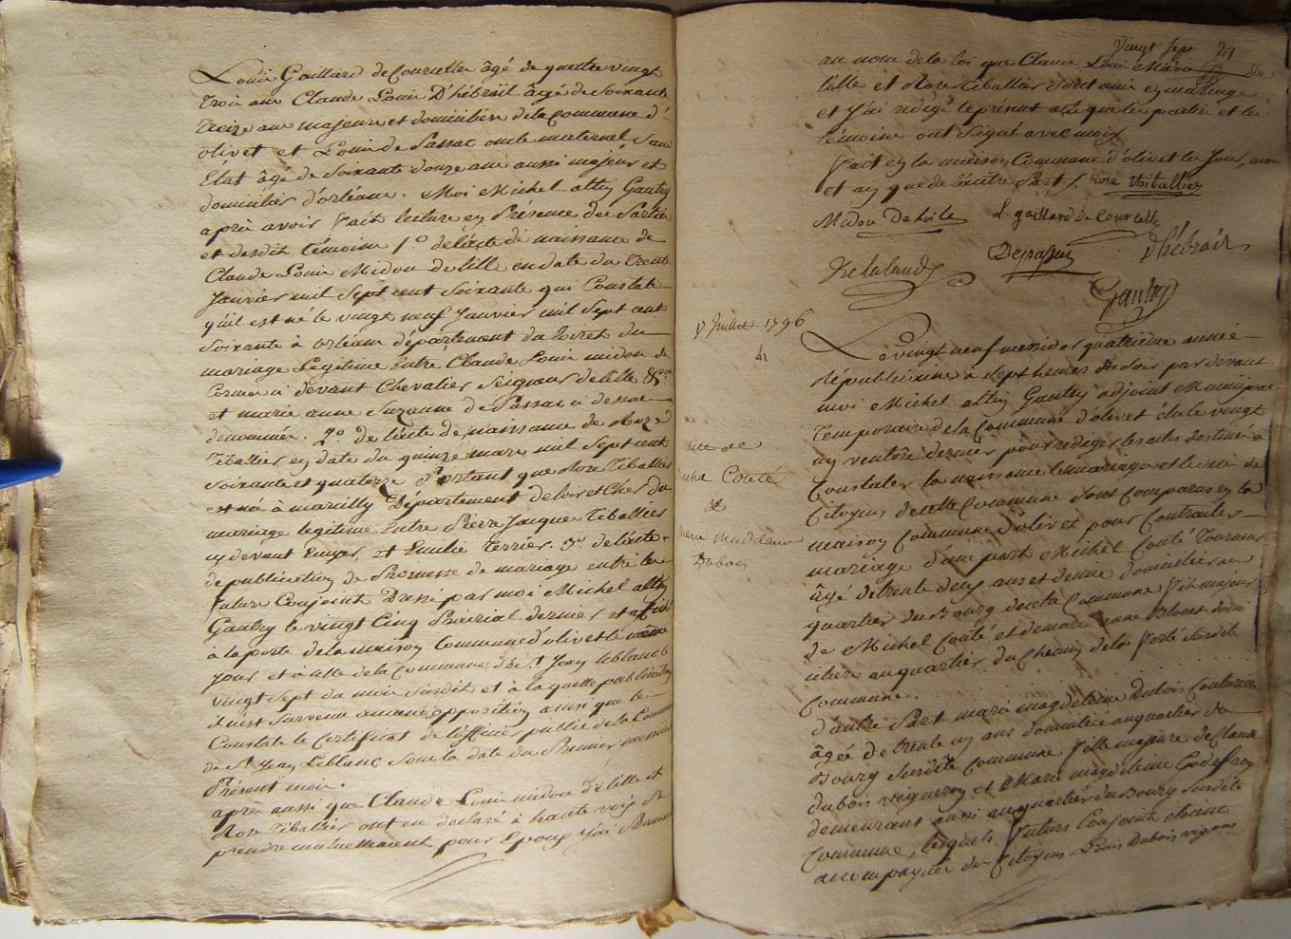 Louis Gaillard de Courcelles âgé de quatre vingt
trois ans Claude Louis D'hébrail âgé de Soixante
treize ans majeurs et domiciliés de la commune d'
olivet et Louis de Passac oncle maternel Sans
Etat âgé de Soixante douze ans aussi majeur et
domicilier d'orléans. Moi Michel altin Gautry
après avoir fait lecture en Présence des Parties
et desdit témoins 1° de l'acte de naissance de
Claude Louis Midou de lille en date du trente
Janvier mil Sept cent Soixante qui Constate
qu'il est né le vingt neuf Janvier mil Sept cent
Soixante à orléans département du Loiret du
mariage Légitime entre Claude Louis midou de
Cormes ci devant Chevalier Seigneur de lille &ca
et marie anne Suzanne de Passac ci dessus
dénommés. 2° de l'acte de naissance de Roze
Tiballier en date du quinze mars mil Sept cent
Soixante et quatorze Portant que Roze Tiballier
est née à marilly Département de loir et Cher du
mariage legitime Entre Pierre Jacques Tiballier
cy devant Ecuyer, et Emilie Terrier. 3° de l'acte
de publication de Promesse de mariage entre les
futurs Conjoint Dressé par moi Michel altin
Gautry le vingt Cinq Prairial dernier et affiché
à la porte de la maison Commune d'olivet le même
Jour et à celle de la Commune de St Jean le blanc le
vingt Sept du mois Susdit et à laquelle publication
il n'est Survenu aucune opposition ainsi que le
Constate le Certificat de l'officier public de la Commune
de St Jean Leblanc Sous la date du Premier messidor
Présent mois.
après aussi que Claude Louis midou de lille et
Rose Tiballier ont eu déclaré à haute voix se
prendre mutuellement pour Epoux J'ai Prononcé
Vingt Sept 27
au nom de la loi que Claude Louis Midou de
lille et Roze Tiballier Sont unis en mariage
et j'ai redigé le présent acte que les parties et les
témoins ont Signé avec moi
fait en la maison Commune d'olivet les Jour, mois
et an que de l'autre Part. Rose thiballier
Midou De Lile L. gaillard de Courcelle
Depassac D'hébrail
Delalande
Gautry
17 Juillet 1796
Le vingt neuf messidor quatrième année
républicaine à Sept heures du Soir par devant
moi Michel altin Gautry adjoint Municipal
temporaire de la Commune d'olivet élu le vingt
un ventôse dernier pour rediger les actes destinés à
Constater la naissance le mariage et le décès des
Citoyens de cette Commune Sont Comparus en la
maison Commune d'olivet pour Contracter
mariage d'une part Michel Couté Tourneur
âgé de trente deux ans et demie domicilier au
quartier du Bourg de cette Commune fils majeur
de Michel Couté et de marie anne domi
ciliés au quartier du Chemin de la Ferté Susdite
Commune.
d'autre Part marie magdeleine Dubois Couturière
âgée de trente un ans domiciliée au quartier du
Bourg Susdite Commune fille majeure de Claude
dubois vigneron et Marie magdeleine Godefroy
demeurant aussi au quartier du Bourg Susdite
Commune, lesquels futurs Conjoint étoient
accompagnés des Citoyens Louis Dubois vigneron
Couté
&
Magdeleine
Dubois